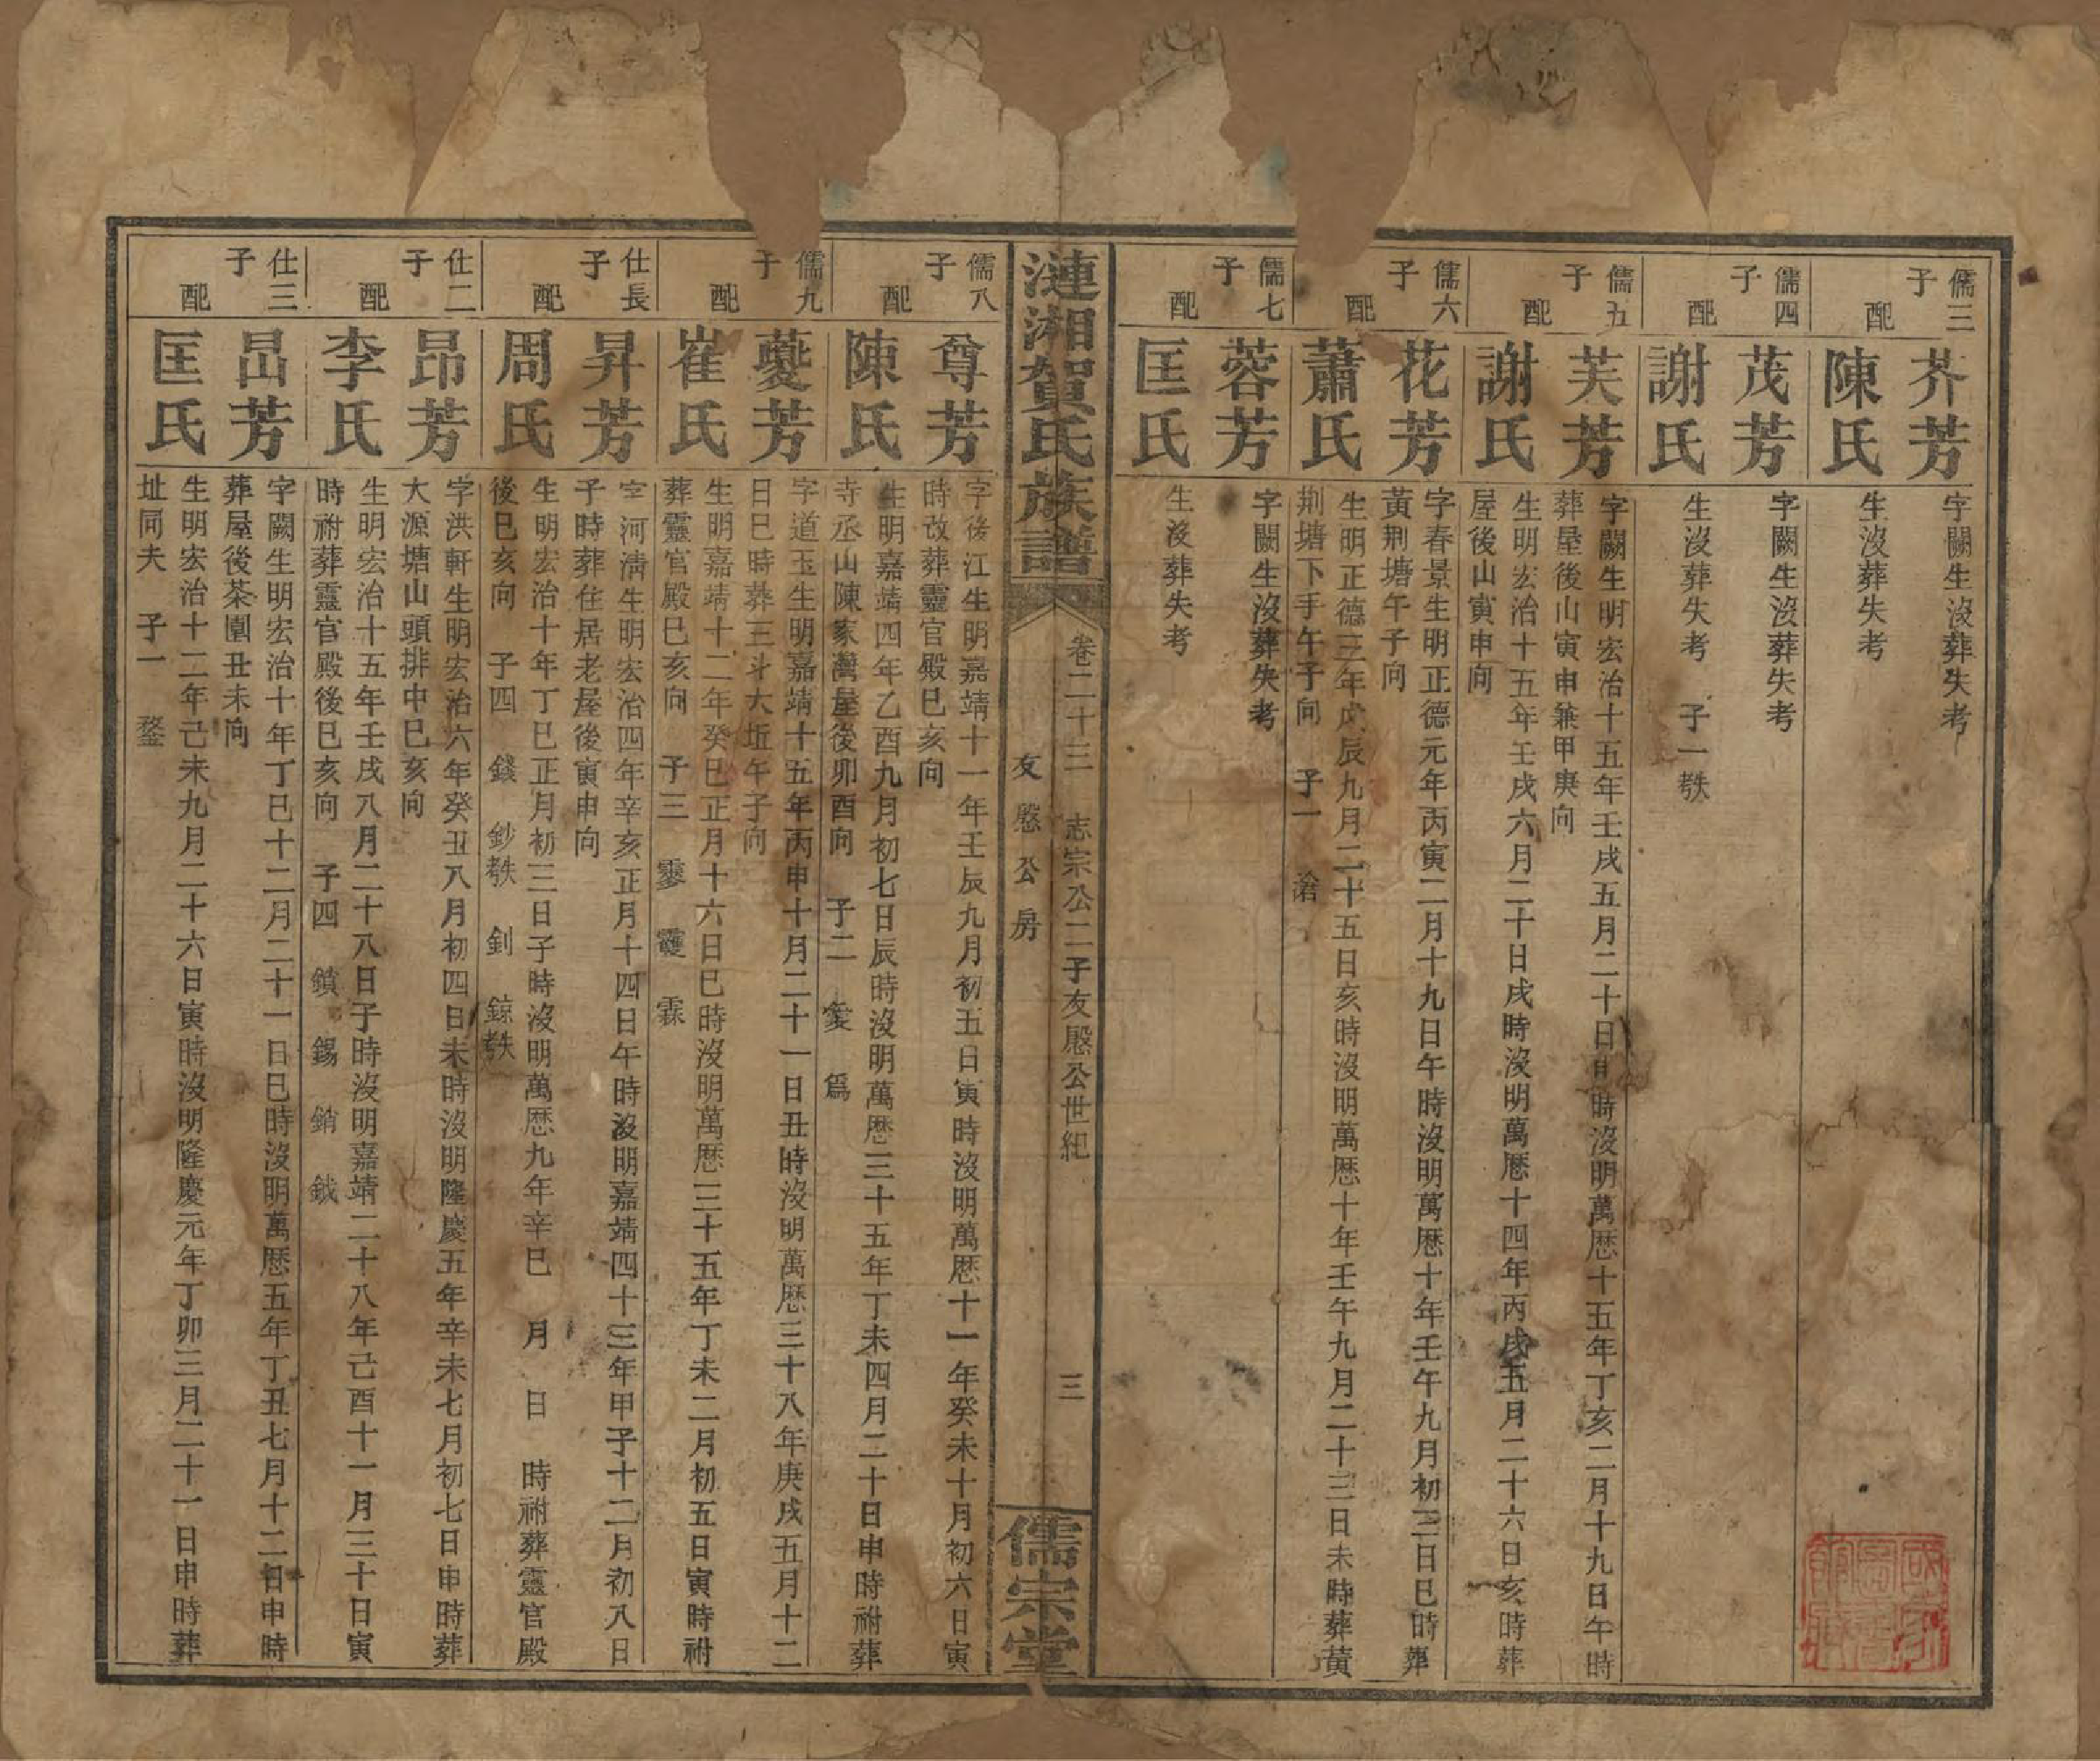 儒三子
芥芳
字闕生沒葬失考
配
陳氏
生沒葬失考
儒四子
茂芳
字闕生沒葬失考
配
謝氏
生沒葬失考 子一 殀
儒五子
芙芳
字闕生明宏治十五年壬戌五月二十日 時沒明萬歷十五年丁亥二月十九日午時
葬屋後山寅申兼甲庚向
配
謝氏
生明宏治十五年壬戌六月二十日戌時沒明萬歷十四年丙戌五月二十六日亥時葬
屋後山寅申向
儒六子
花芳
字春景生明正德元年丙寅二月十九日午時沒明萬歷十年壬午九月初三日巳時葬
黃荆塘午子向
配
蕭氏
生明正德三年戊辰九月二十五日亥時沒明萬歷十年壬午九月二十三日未時葬黃
荆塘下手午子向 子一 滄
儒七子
蓉芳
字闕生沒葬失考
配
匡氏
生沒葬失考
漣湘賀氏族譜
卷二十三 志宗公二子友慇公世紀
友慇公房
三
儒宗堂
儒八子
尊芳
字後江生明嘉靖十一年壬辰九月初五日寅時沒明萬歷十一年癸未十月初六日寅
時改葬靈官殿巳亥向
配
陳氏
生明嘉靖四年乙酉九月初七日辰時沒明萬歷三十五年丁未四月二十日申時祔葬
寺丞山陳家灣屋後卯酉向 子二 爲
儒九子
蘷芳
字道玉生明嘉靖十五年丙申十月二十一日丑時沒明萬歷三十八年庚戌五月十二
日巳時葬三斗大坵午子向
配
崔氏
生明嘉靖十二年癸巳正月十六日巳時沒明萬歷三十五年丁未二月初五日寅時祔
葬靈官殿巳亥向 子三 霖
仕長子
昇芳
字河淸生明宏治四年辛亥正月十四日午時沒明嘉靖四十三年甲子十二月初八日
子時葬住居老屋後寅申向
配
周氏
生明宏治十年丁巳正月初三日子時沒明萬歷九年辛巳 月 日 時祔葬靈官殿
後巳亥向 子四 錢 鈔殀 釗 鍄殀
仕二子
昂芳
字洪軒生明宏治六年癸丑八月初四日未時沒明隆慶五年辛未七月初七日申時葬
大源塘山頭排中巳亥向
配
李氏
生明宏治十五年壬戌八月二十八日子時沒明嘉靖二十八年己酉十一月三十日寅
時祔葬靈官殿後巳亥向 子四 鎮 錫 銷 鉞
仕三子
昌芳
字闕生明宏治十年丁巳十二月二十一日巳時沒明萬歷五年丁丑七月十二日申時
葬屋後茶園丑未向
配
匡氏
生明宏治十二年己未九月二十六日寅時沒明隆慶元年丁卯三月二十一日申時葬
址同夫 子一 鍪